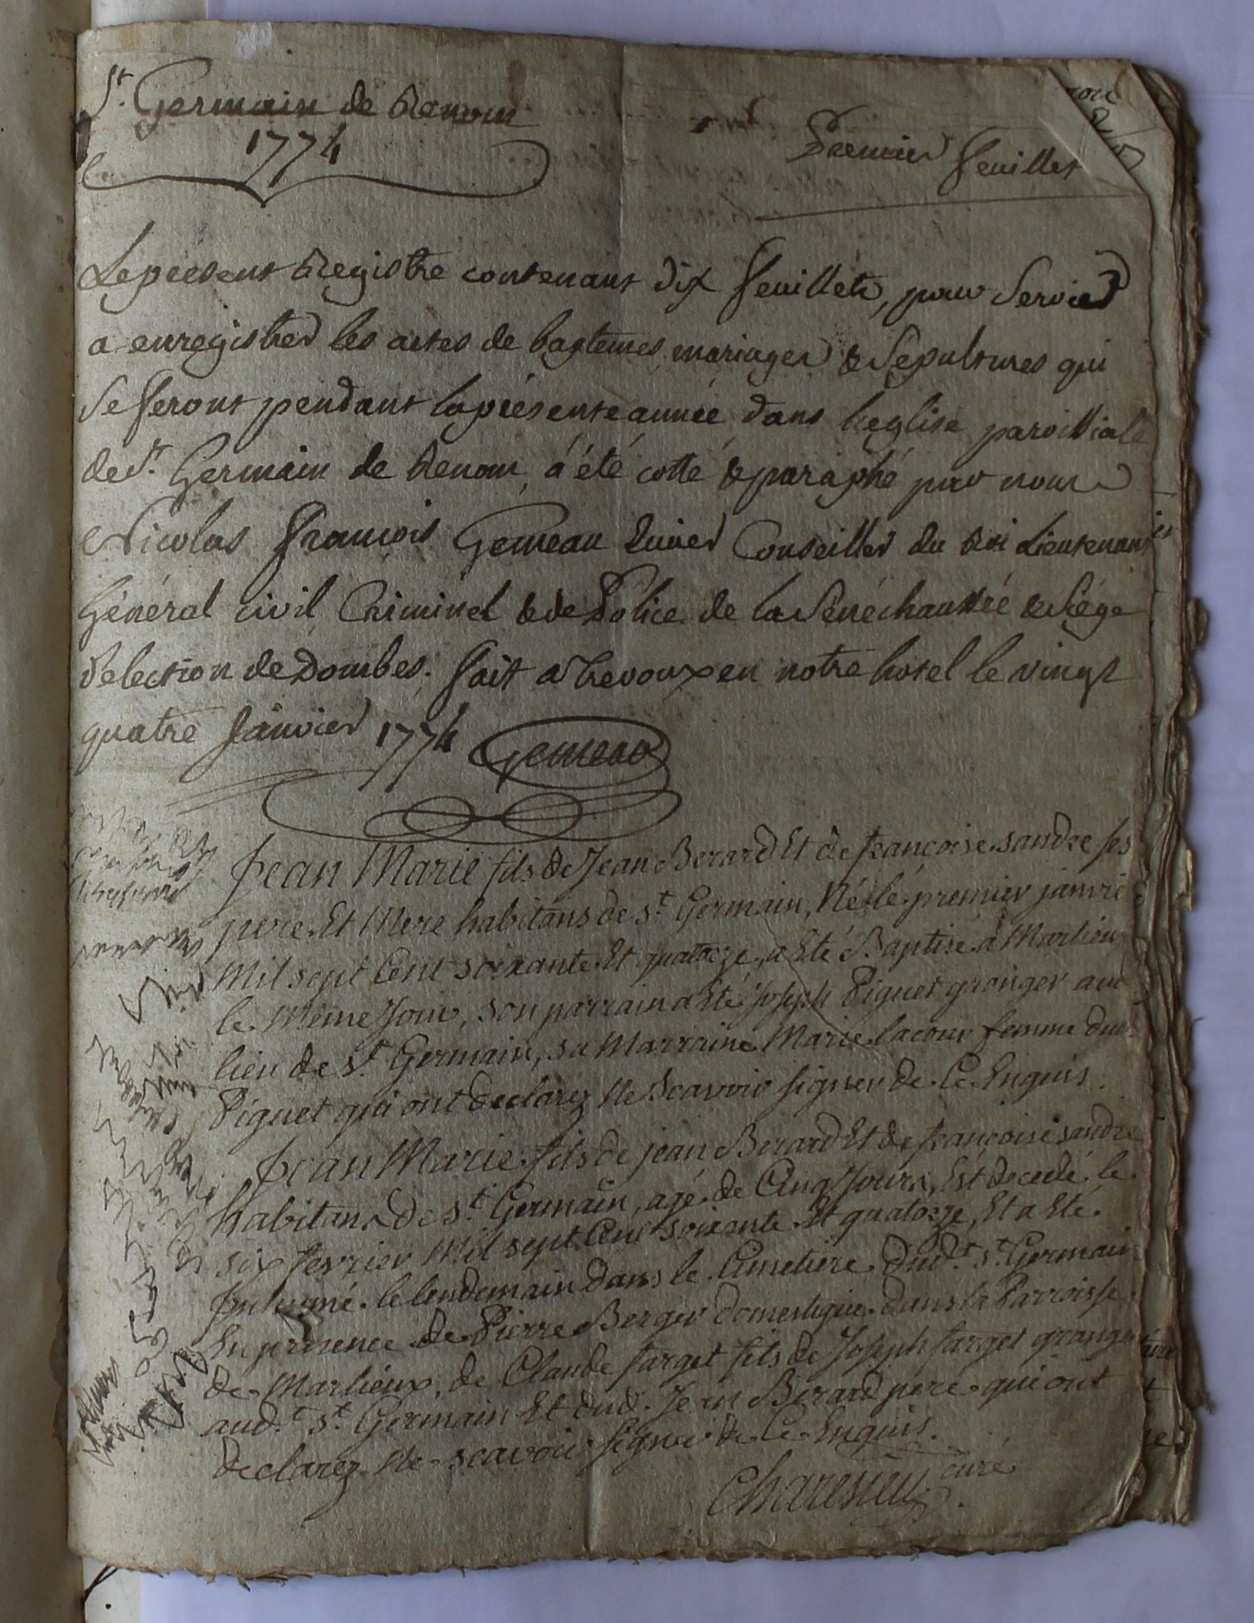 St. Germain de Renom
1774
Premier feuillet
Le present Registre contenant dix feuillets, pour Servir
a enregistrer les actes de baptemes mariages & Sepultures qui
Se feront pendant la présente année dans l'eglise paroissiale
de St. Germain de Renom, á été cotté & paraphé par nous
Nicolas François Gemeau Conseiller du Roi Lieutenant
Général Civil Criminel & de Police de la Sénéchaussée & Siége
d'election de Dombes. fait a trevoux en notre hotel le vingt
quatre Janvier 1774 Gemeau
Jean Marie fils de Jean Berard Et de françoise sandre ses
pere Et Mere habitans de St. Germain, Né le premier janvier
Mil sept Cent soixante Et quatorze, a Eté Baptisé á Marlieux
le Même Jour, son parrain a Eté Joseph Piguet granger aud
lieu de St. Germain, sa Marraine Marie lacour femme dud
Piguet qui ont declarez Ne Scavoir signer de Ce Enquis.
Jean Marie fils de jean Berard Et de françoise sandre
habitans de St. Germain, agé de Cinq Jours, Est decedé le
six fevrier Mil sept Cent soixante Et quatorze, Et a Eté
Inhumé le lendemain dans le Cimetiere dud.t St. Germain
En presence de Pierre Berger domestique dans la Parroisse
de Marlieux, de Claude farget fils de Joseph farget granger
aud.t St. Germain Et dud. Jean Berard pere qui ont
declarez Ne scavoir signer de Ce Enquis.
curé